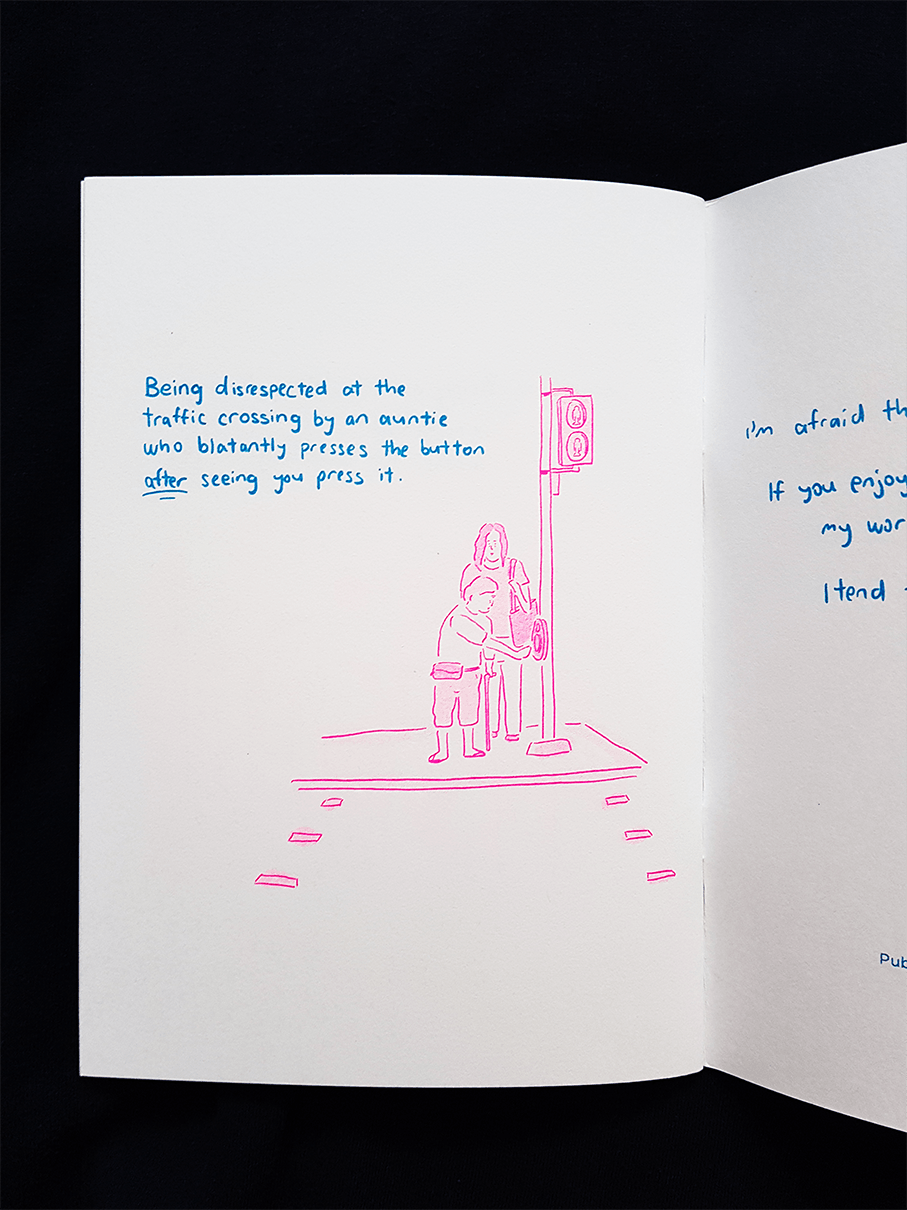 Being disrespected at the
traffic crossing by an auntie
who blatantly presses the button
after seeing you press it.
I'm afraid th
If you enjoy
my wor
I tend
Pub